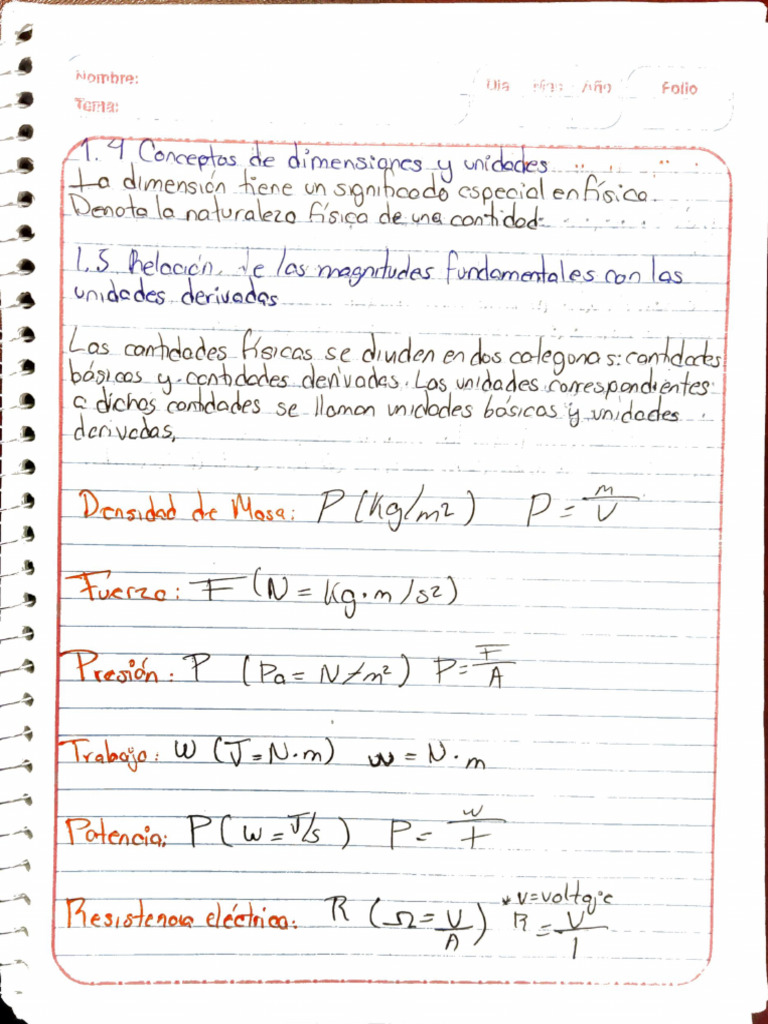 Nombre:
Día Mes Año Folio
Tema:
1.4 Conceptos de dimensiones y unidades
La dimensión tiene un significado especial en física.
Denota la naturaleza física de una cantidad.
1.5 Relación de las magnitudes fundamentales con las
unidades derivadas
Las cantidades físicas se dividen en dos categorias: cantidades
básicas y cantidades derivadas. Las unidades correspondientes
a dichas cantidades se llaman unidades básicas y unidades
derivadas,
Densidad de Masa: P (Kg/m²) P = m/V
Fuerza: F (N = Kg·m/s²)
Presión: P (Pa = N/m²) P = F/A
Trabajo: W (J = N·m) w = N·m
Potencia: P (w = J/s) P = w/t
*V=voltaje
Resistencia eléctrica: R (Ω = V/A) R = V/I